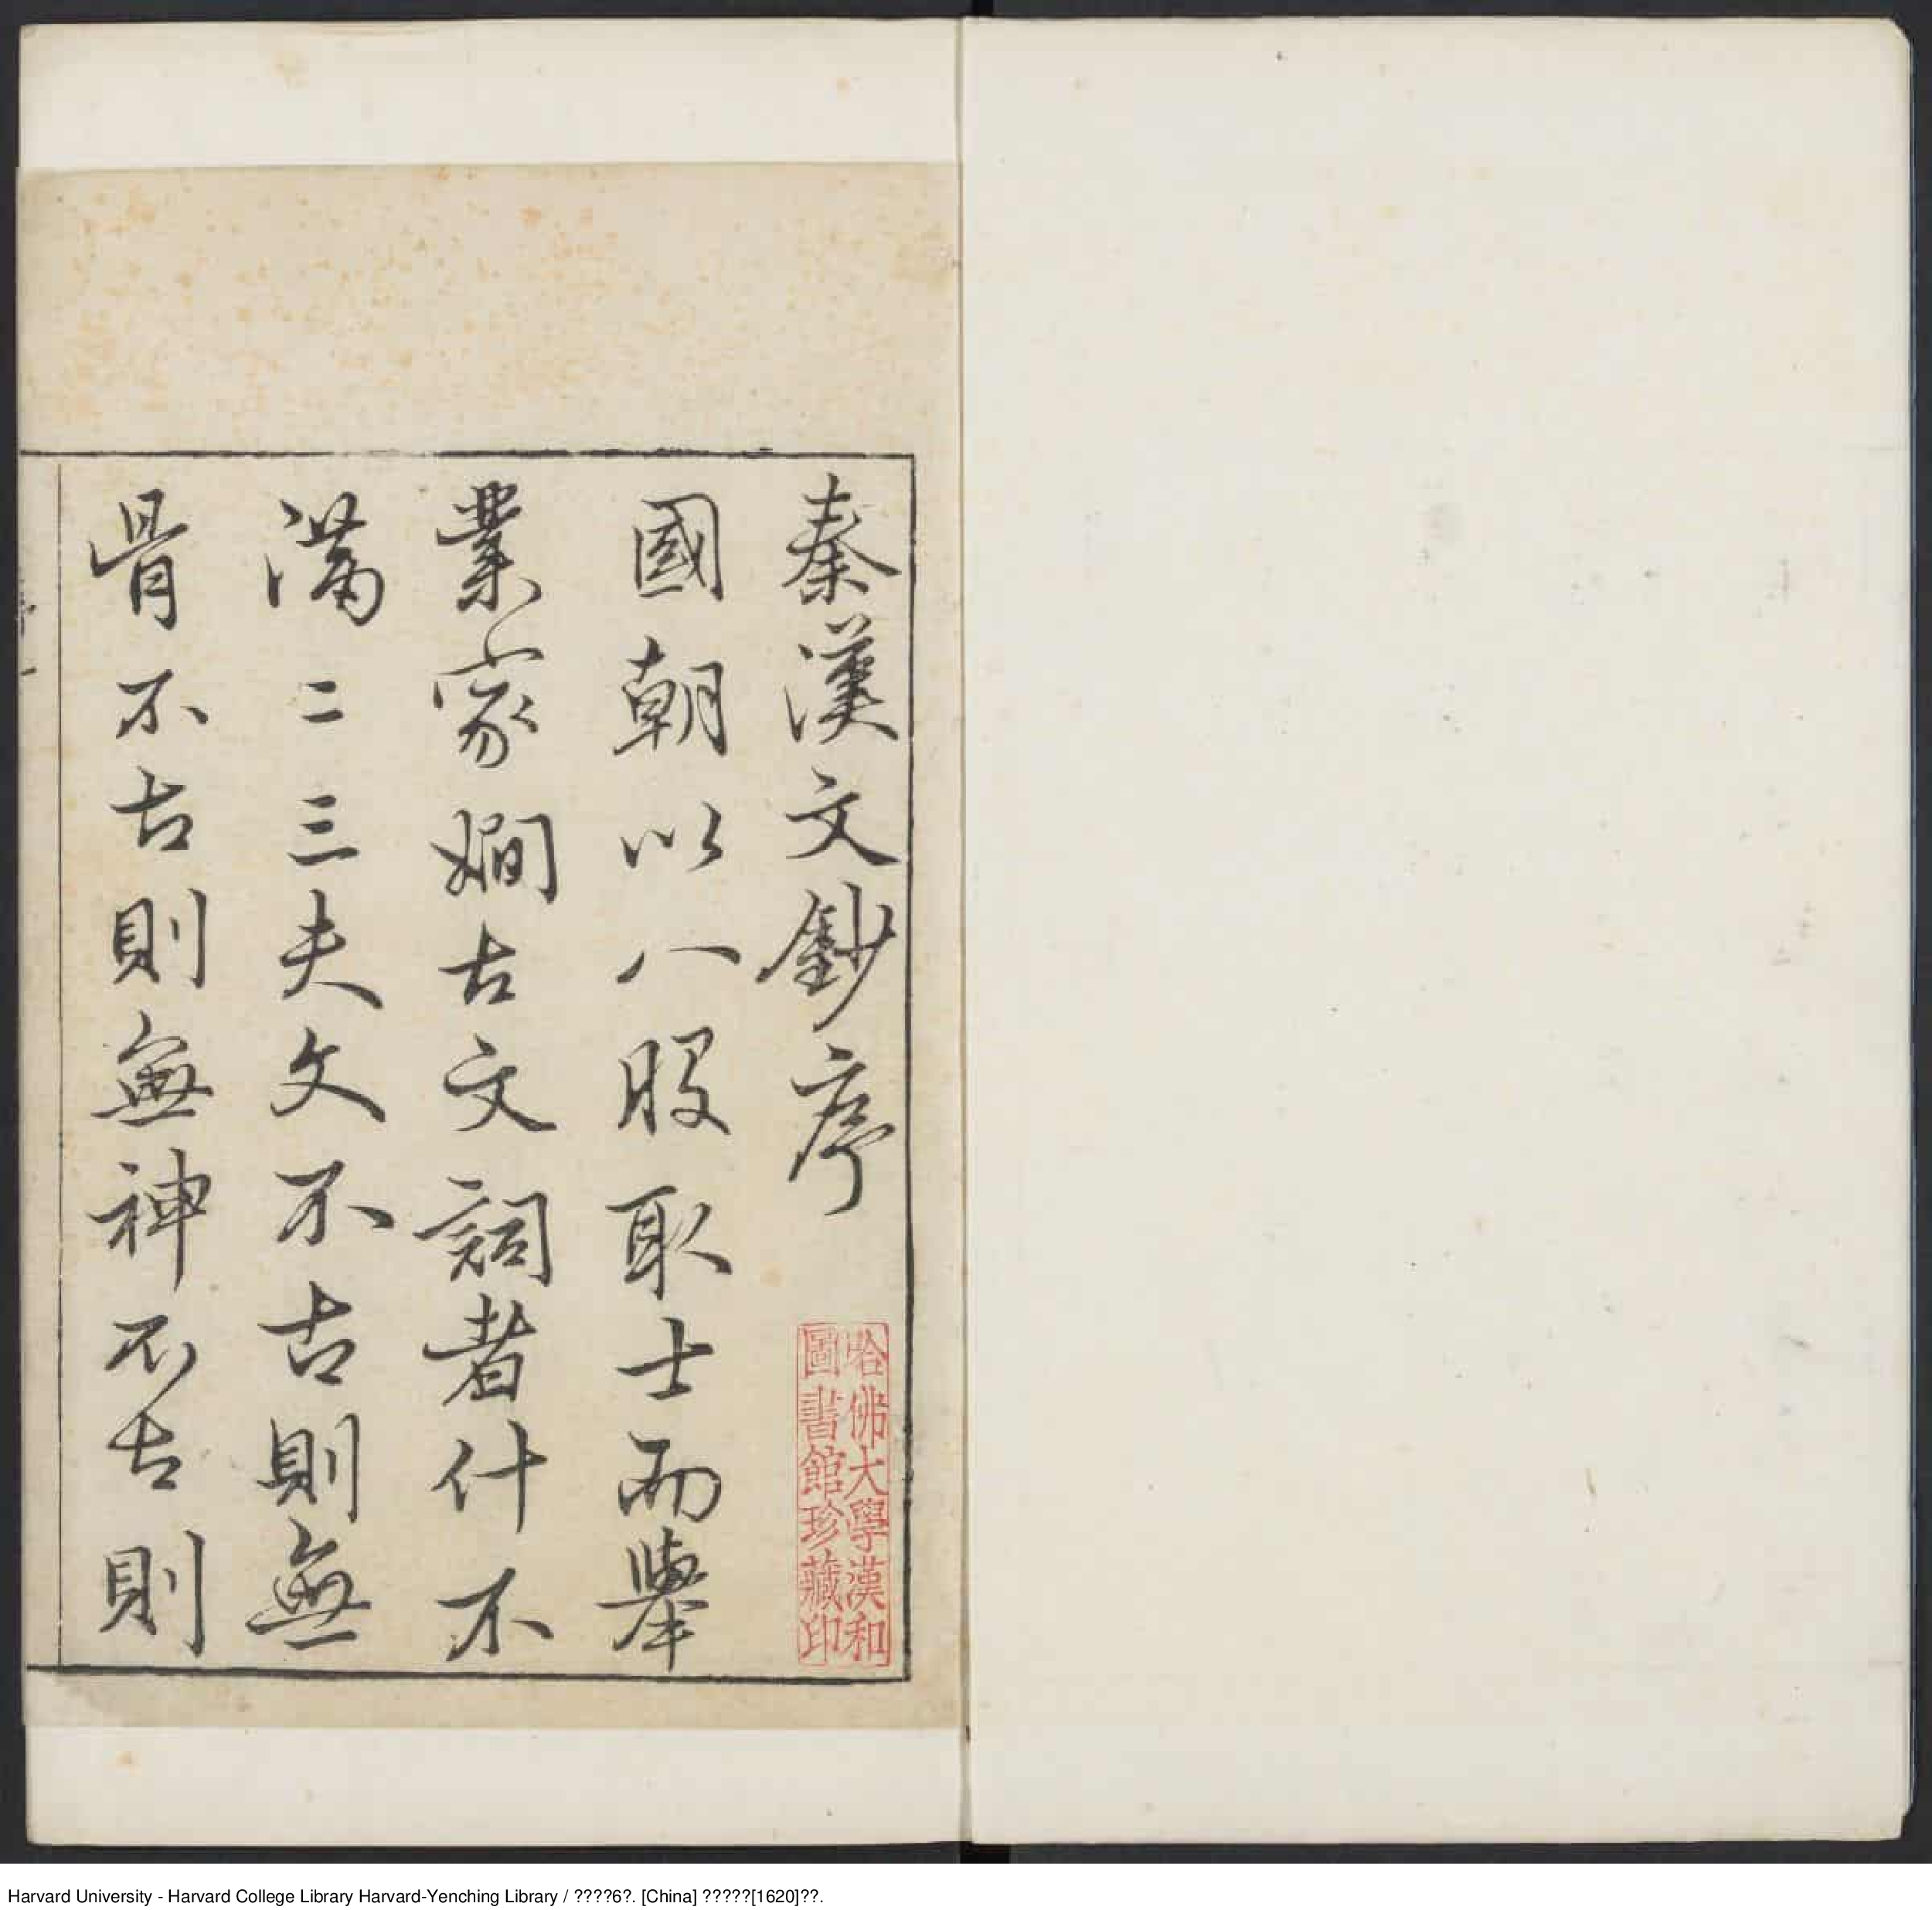 秦漢文鈔序
國朝以八股取士而舉
業家嫺古文詞者什不
滿二三夫文不古則無
骨不古則無神不古則
哈佛大學漢和
圖書館珍藏印
Harvard University - Harvard College Library Harvard-Yenching Library / ????6?. [China] ?????[1620]??.